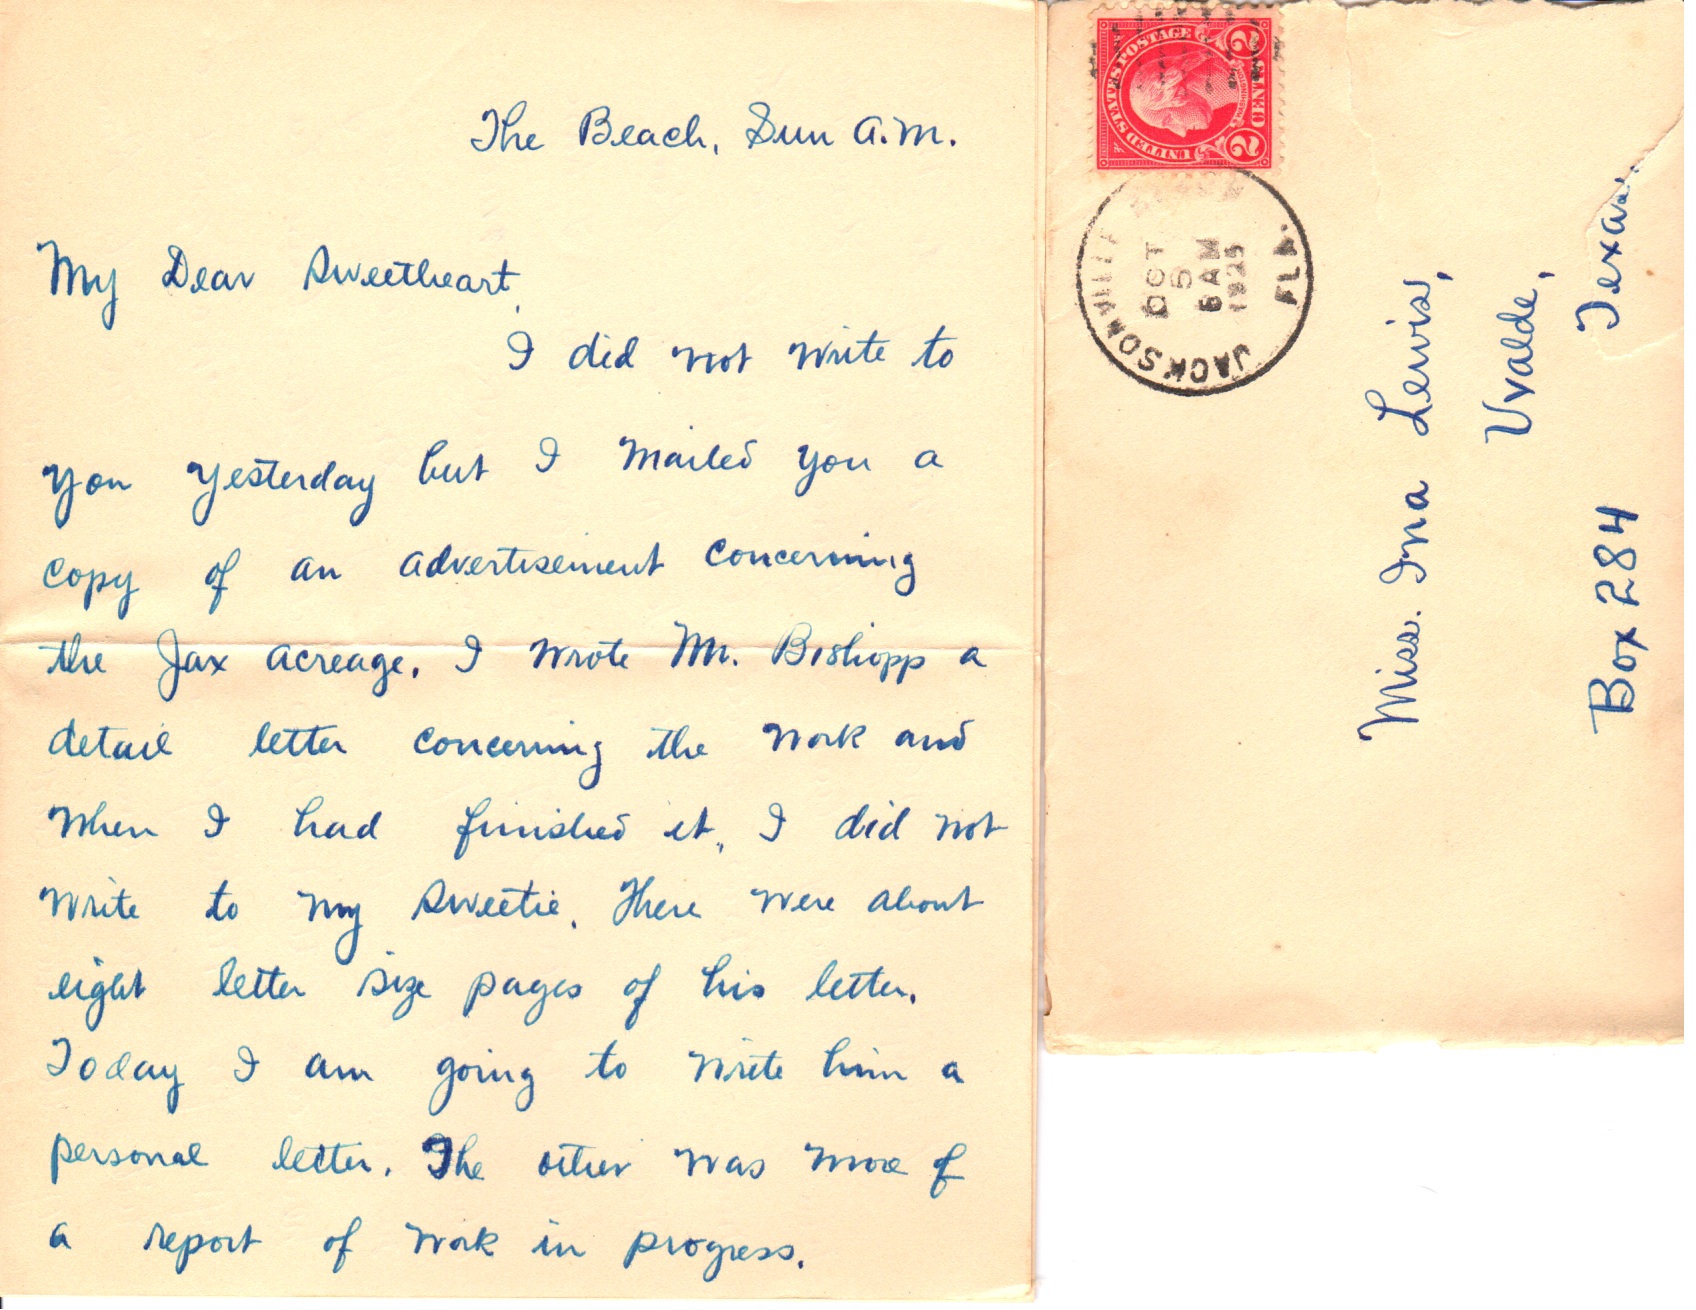 The Beach, Sun A.M.
My Dear Sweetheart,
I did not write to
you yesterday but I mailed you a
copy of an advertisement concerning
the Jax acreage. I wrote Mr. Bishopp a
detail letter concerning the work and
when I had finished it, I did not
write to my sweetie. There were about
eight letter size pages of his letter.
Today I am going to write him a
personal letter. The other was more of
a report of work in progress.
UNITED STATES POSTAGE
2 CENTS 2
JACKSONVILLE
FLA.
OCT
5
6 AM
1925
Miss. Ina Lewis,
Uvalde,
Box 284 Texas.